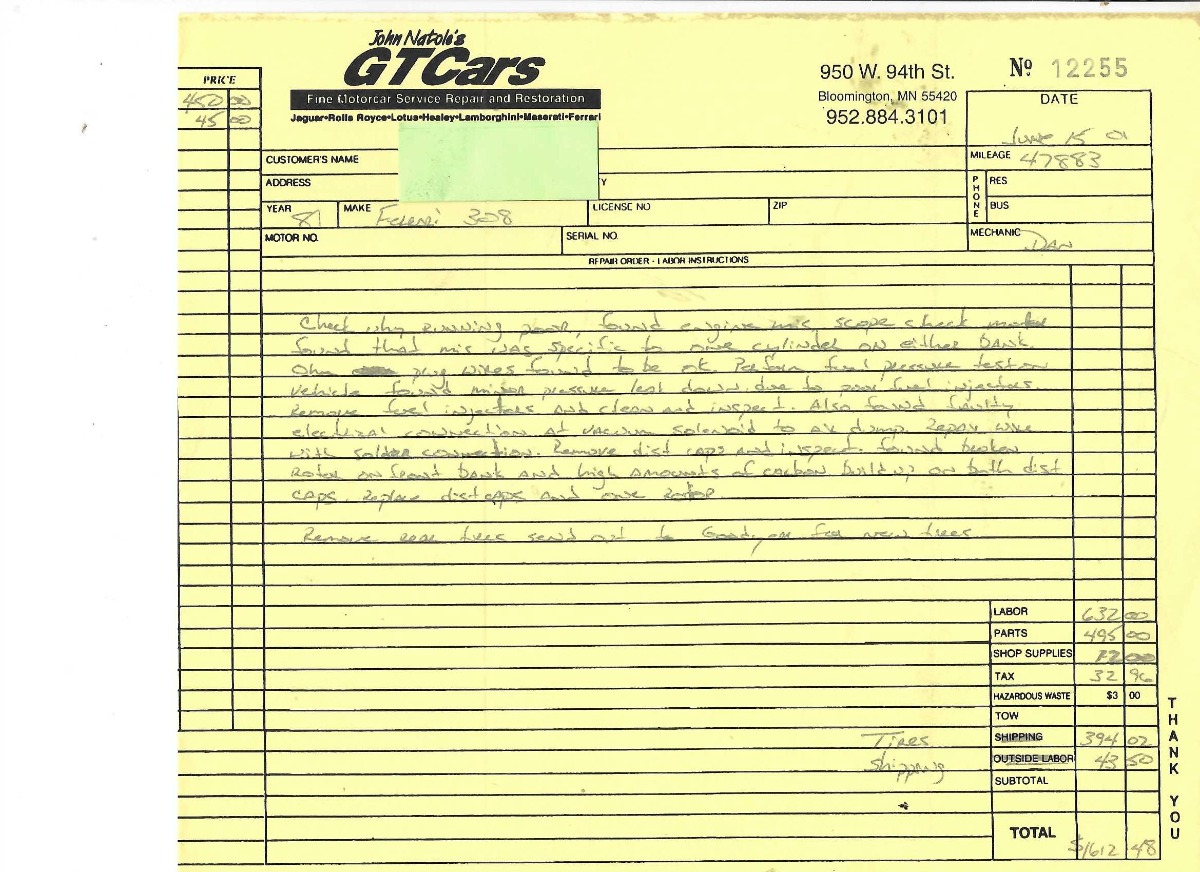 John Natole's
GTCars
Fine Motorcar Service Repair and Restoration
Jaguar•Rolls Royce•Lotus•Healey•Lamborghini•Maserati•Ferrari
950 W. 94th St.
Bloomington, MN 55420
952.884.3101
Nº 12255
DATE
June 15 01
PRICE
450 00
45 00
CUSTOMER'S NAME
MILEAGE 47883
ADDRESS Y
PHONE RES
BUS
YEAR 81 MAKE Ferrari 308 LICENSE NO ZIP
MOTOR NO. SERIAL NO.
MECHANIC Dan
REPAIR ORDER - LABOR INSTRUCTIONS
Check why running poor, found engine mis, scope check
found that mis was specific to one cylinder on either bank.
Ohm plug wires found to be ok. Perform fuel pressure test on
vehicle found minor pressure lest down due to poor fuel injectors.
Remove fuel injectors and clean and inspect. Also found faulty
electrical connection at vacuum solenoid to air dump. Repair wire
with solder connection. Remove dist caps and inspect found broken
Rotor on front bank and high amounts of carbon build up on both dist
caps. Replace dist caps and one Rotor
Remove rear tires send out to Goodyear for new tires
LABOR 632 00
PARTS 495 00
SHOP SUPPLIES 12 00
TAX 32 96
HAZARDOUS WASTE $3 00
TOW
Tires SHIPPING 394 02
Shipping OUTSIDE LABOR 43 50
SUBTOTAL
TOTAL $1612 48
THANK YOU